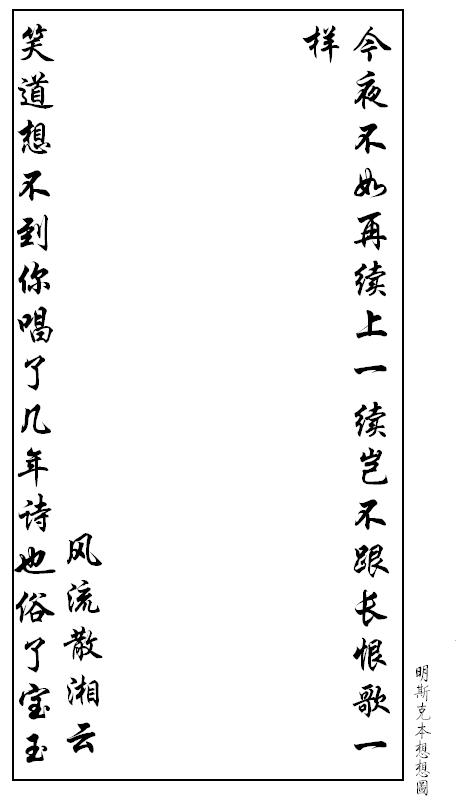 今夜不如再续上一续岂不跟长恨歌一
样
风流散湘云
笑道想不到你唱了几年诗也俗了宝玉
明斯克本想想圖